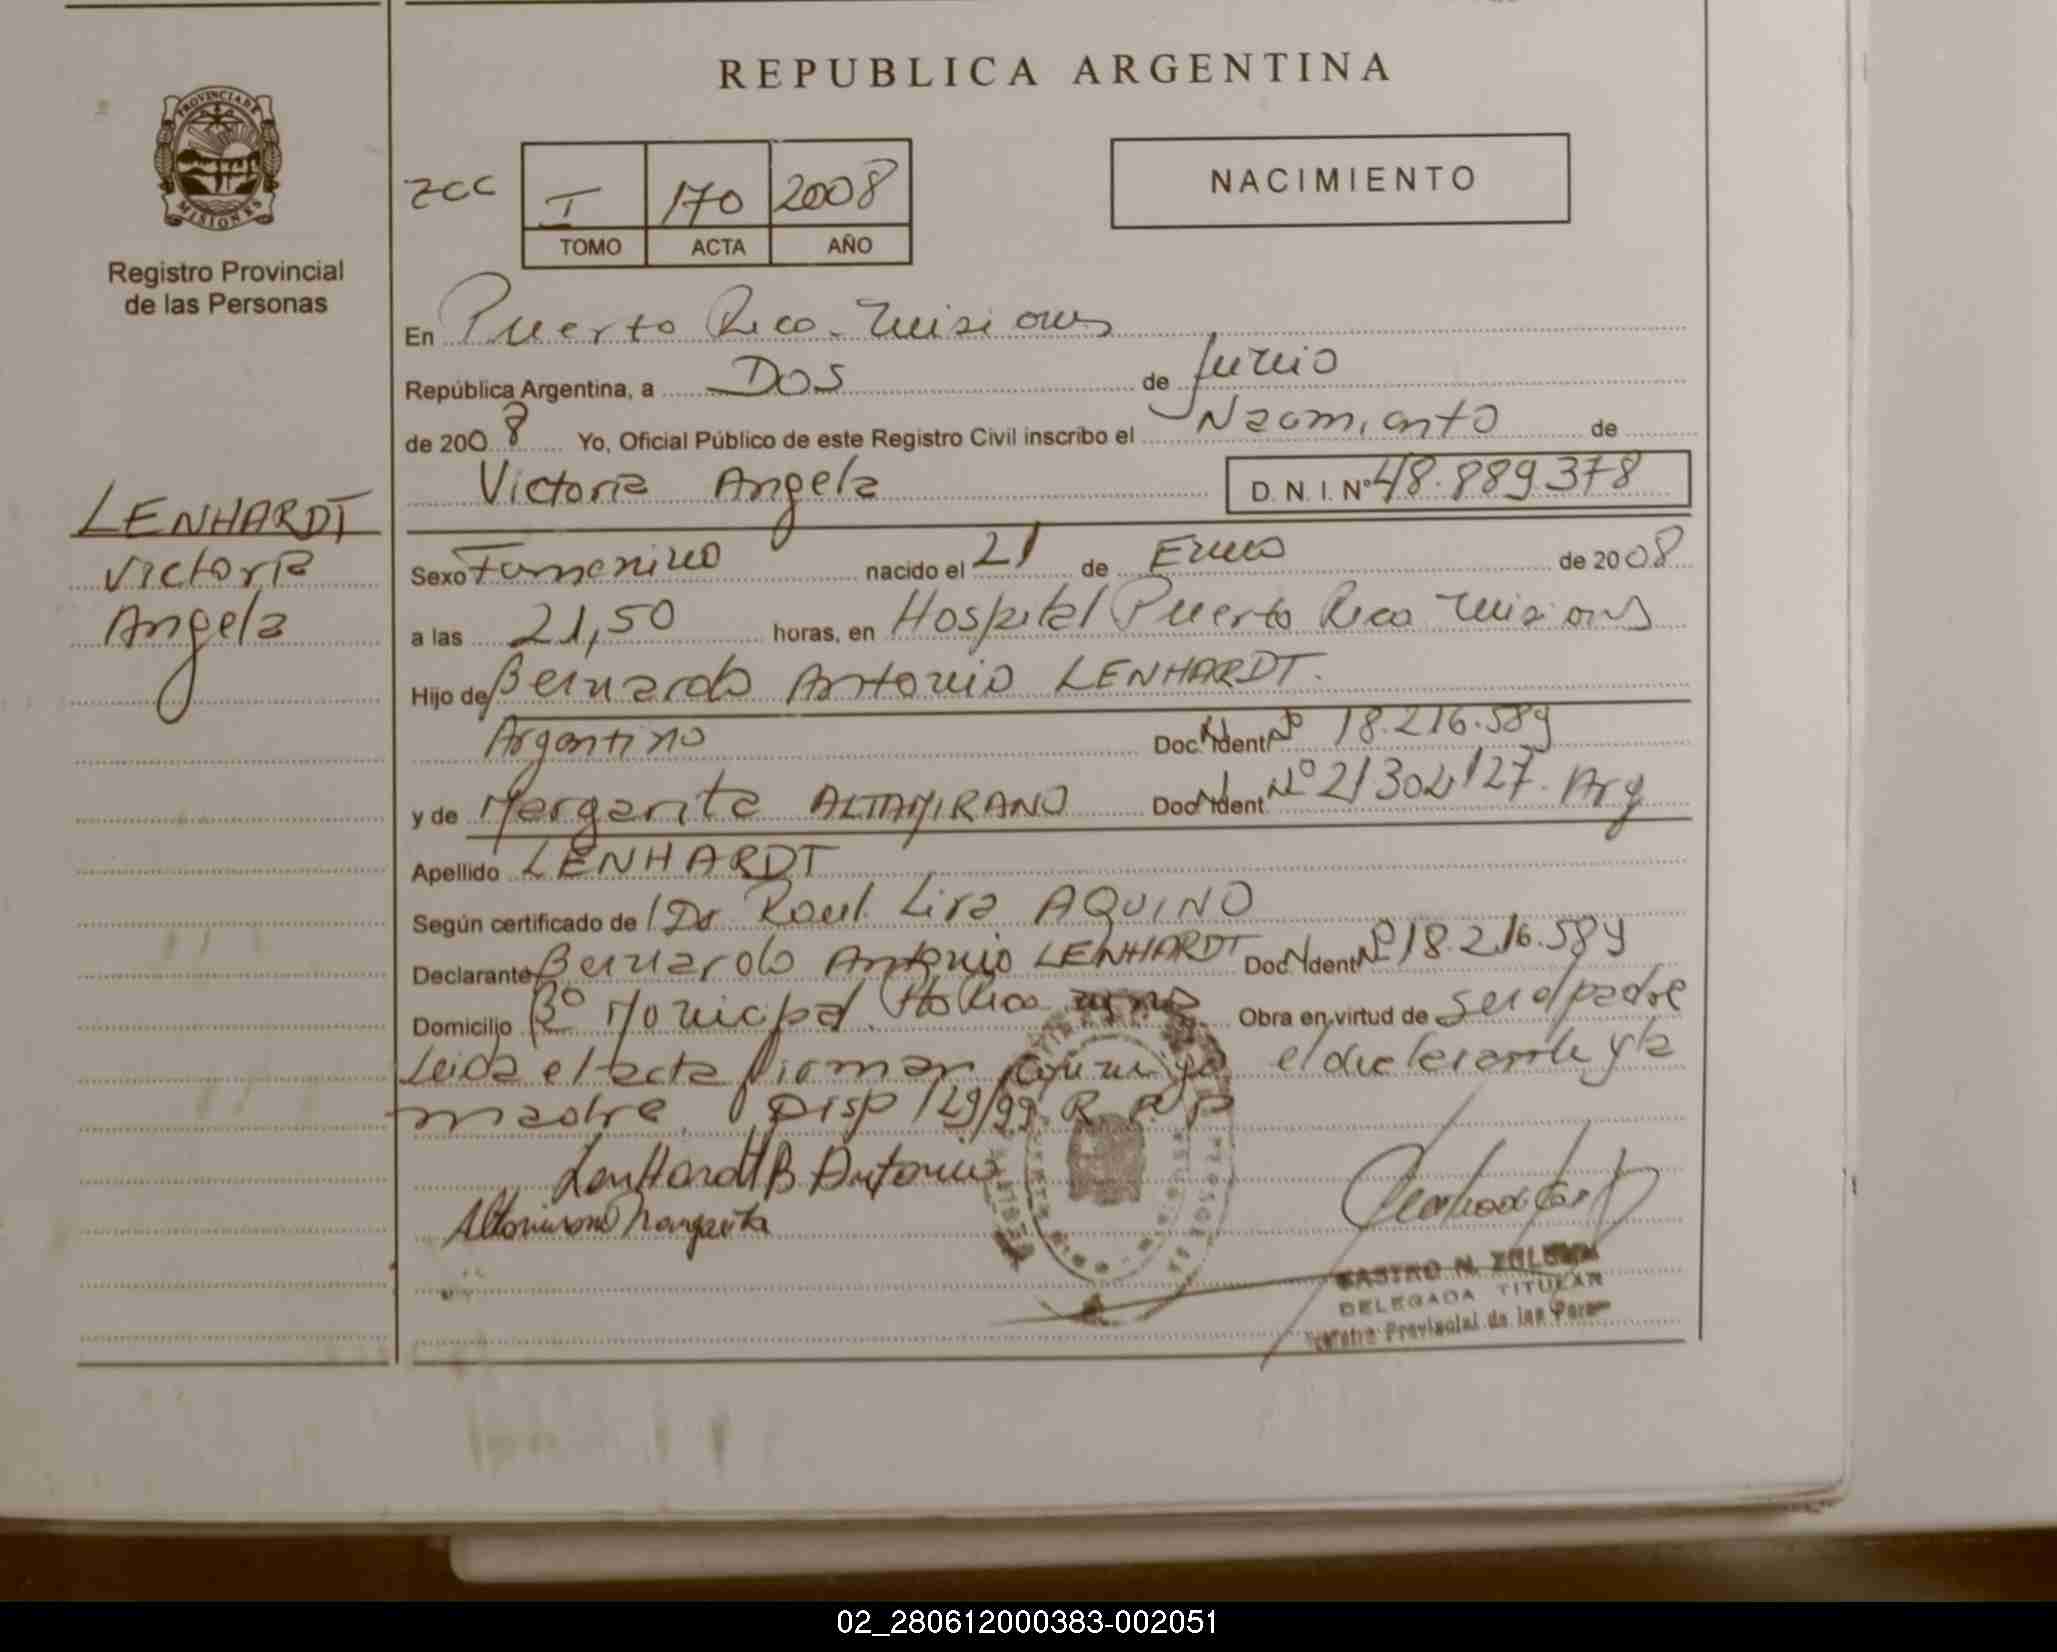 REPUBLICA ARGENTINA
PROVINCIA DE
MISIONES
Registro Provincial
de las Personas
I 170 2008
TOMO ACTA AÑO
NACIMIENTO
En Puerto Rico - Misiones
República Argentina, a Dos de Junio
de 2008 Yo, Oficial Público de este Registro Civil inscribo el Nacimiento de
Victoria Angela D. N. I. Nº 48.889.378
LENHARDT
Victoria
Angela
Sexo Femenino nacido el 21 de Enero de 2008
a las 21,50 horas, en Hospital Puerto Rico Misiones
Hijo de Bernardo Antonio LENHARDT.
Argentino Doc. Ident. Nº 18.216.589
y de Margarita ALTAMIRANO Doc. Ident. Nº 21304127. Arg
Apellido LENHARDT
Según certificado de Dr Raul Lira AQUINO
Declarante Bernardo Antonio LENHARDT Doc. Ident. Nº 18.216.589
Domicilio Bº Municipal Pto Rico Obra en virtud de ser el padre
Leida el acta firman conmigo el declarante y la
madre. Disp 129/99 R. P. P
Lenhardt B Antonio
Altamirano Margarita
CASTRO N.
DELEGADA TITULAR
Provincial de las Pers
02_280612000383-002051